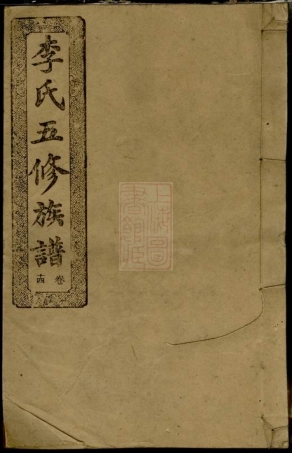 李氏五修族譜
卷
上海圖
書館藏